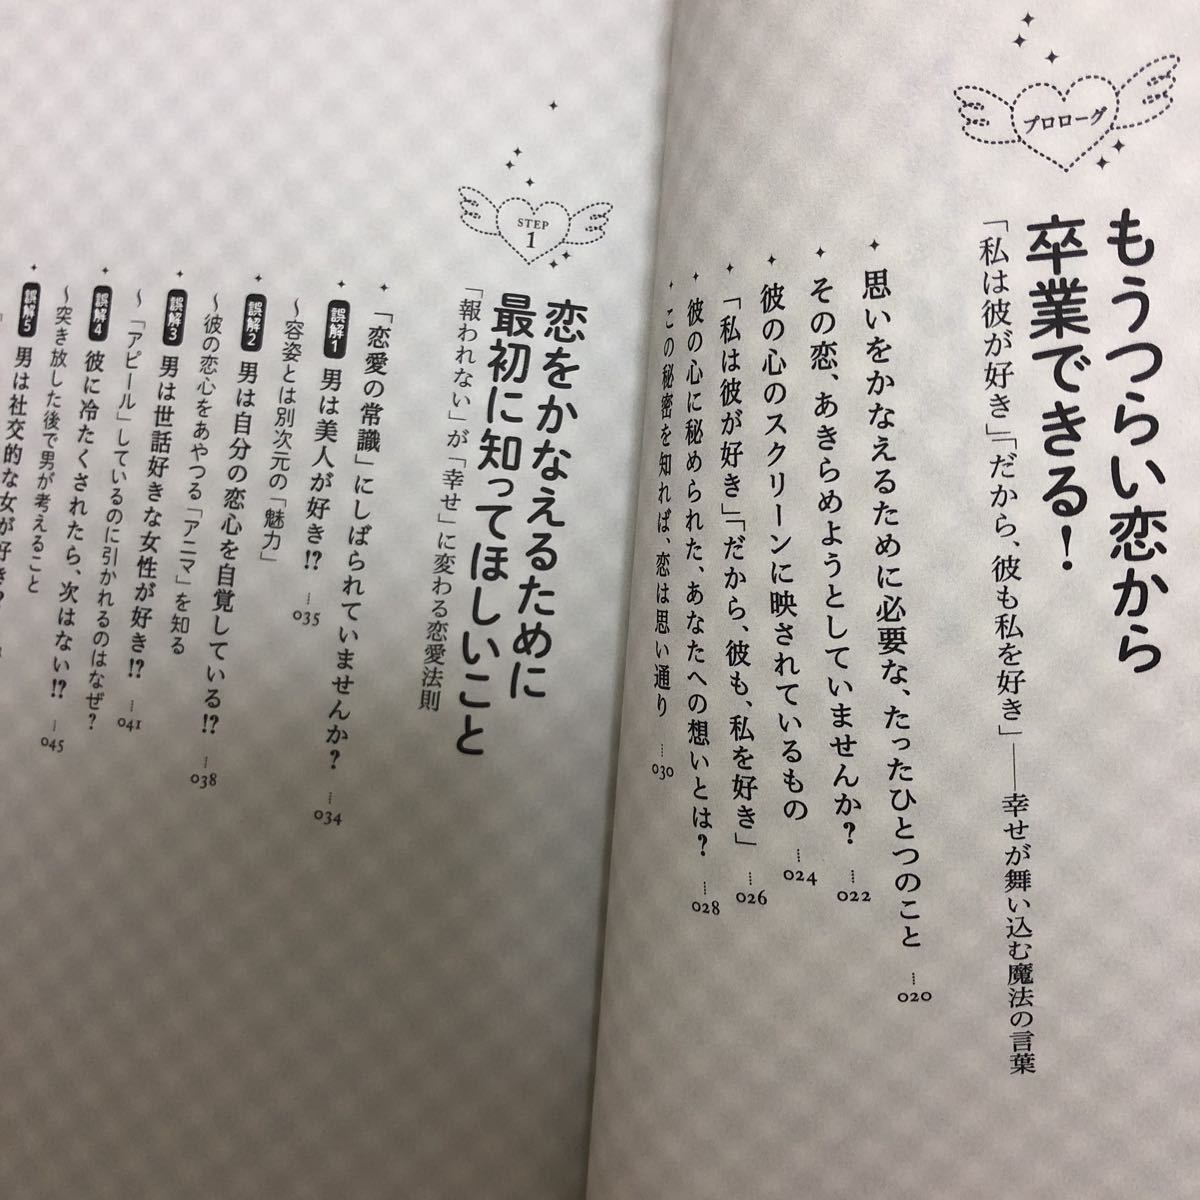 プロローグ
もうつらい恋から
卒業できる！
「私は彼が好き」「だから、彼も私を好き」――幸せが舞い込む魔法の言葉
思いをかなえるために必要な、たったひとつのこと …020
その恋、あきらめようとしていませんか？ …022
彼の心のスクリーンに映されているもの …024
「私は彼が好き」「だから、彼も、私を好き」 …026
彼の心に秘められた、あなたへの想いとは？ …028
この秘密を知れば、恋は思い通り …030
STEP
1
恋をかなえるために
最初に知ってほしいこと
「報われない」が「幸せ」に変わる恋愛法則
「恋愛の常識」にしばられていませんか？ …034
誤解1 男は美人が好き!? …035
～容姿とは別次元の「魅力」
誤解2 男は自分の恋心を自覚している!? …038
～彼の恋心をあやつる「アニマ」を知る
誤解3 男は世話好きな女性が好き!? …041
～「アピール」しているのに引かれるのはなぜ？
誤解4 彼に冷たくされたら、次はない!? …045
～突き放した後で男が考えること
誤解5 男は社交的な女が好き？